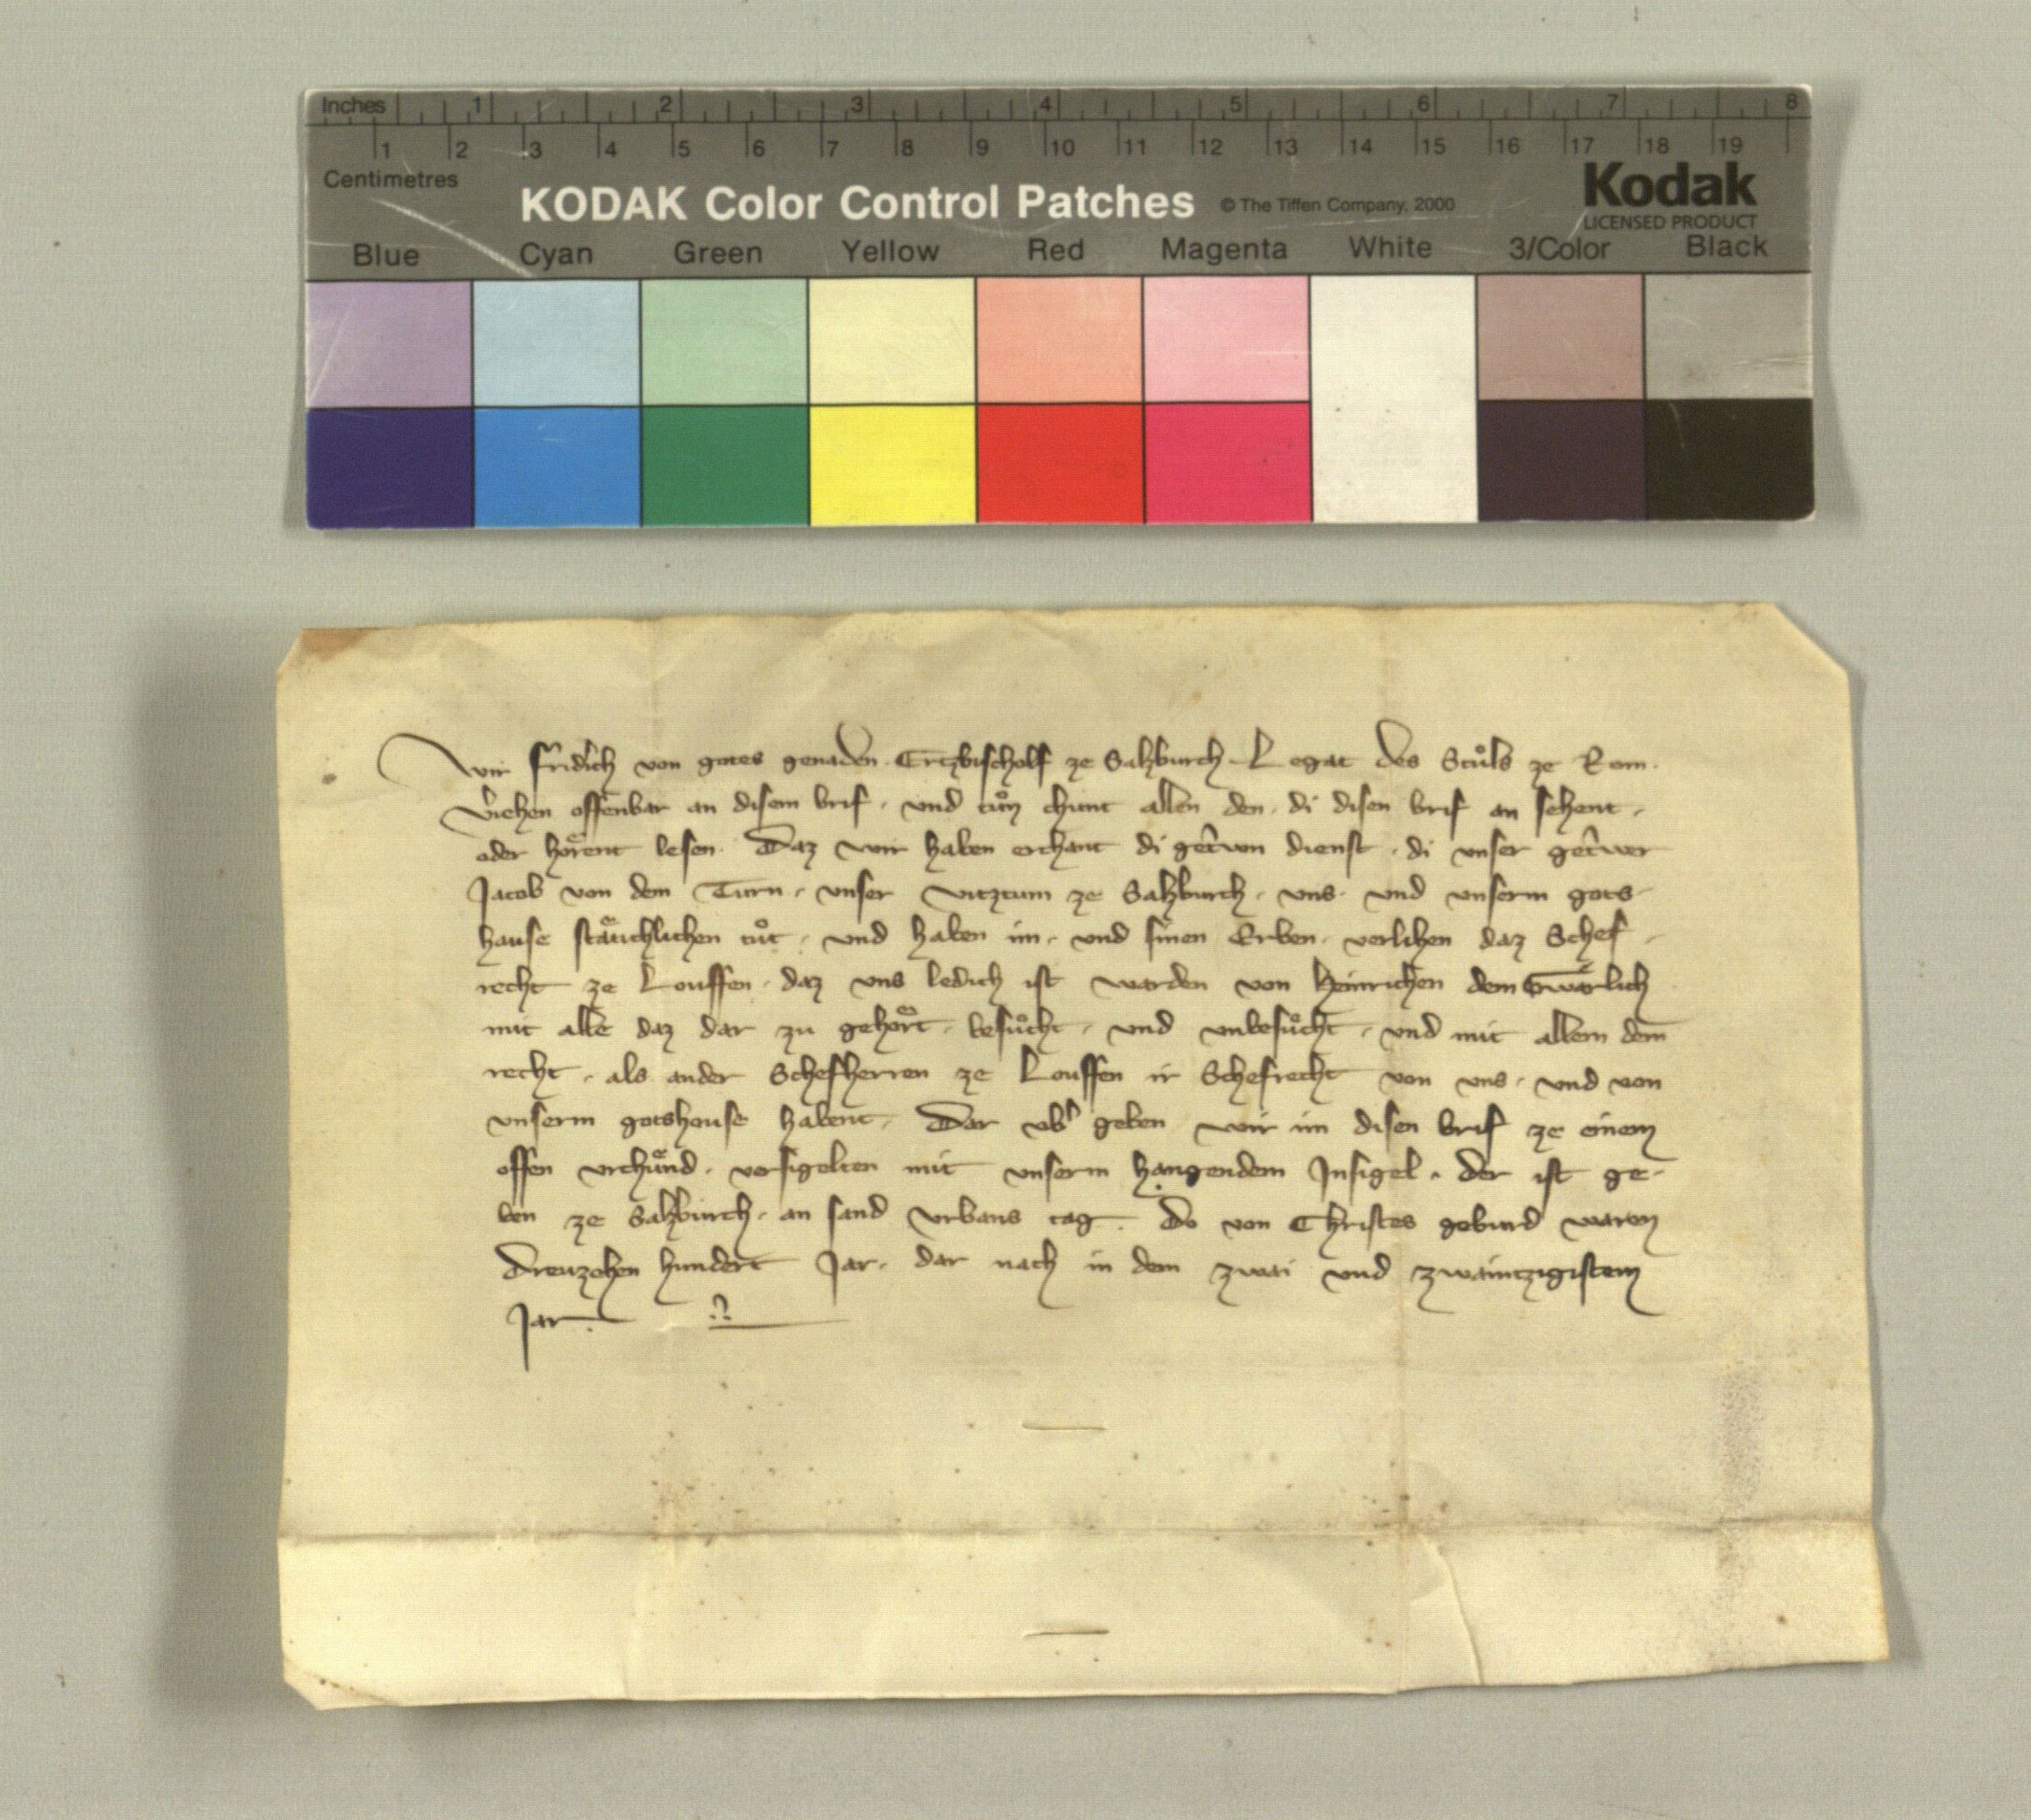 Inches 1 2 3 4 5 6 7 8
1 2 3 4 5 6 7 8 9 10 11 12 13 14 15 16 17 18 19
Centimetres
KODAK Color Control Patches © The Tiffen Company, 2000 Kodak
LICENSED PRODUCT
Blue Cyan Green Yellow Red Magenta White 3/Color Black
Wir Fridͥch von gotes genaden Ertzbischolf ze Salzburch Legat des Stuͦls ze Rom.
v̓iehen offenbar an disem brif. und tuͦn chunt allen den. di disen brif an sehent.
oder hoͤrent lesen. Daz wir haben erchant di getͥwen dienst. di unser getͥwer
Jacob von dem Turn. unser vitztum ze Salzburch. uns. und unserm gots
hause staͤtichlichen tuͦt. und haben im. und sinen Erben. verlihen daz Schef
recht ze Louffen. daz uns ledich ist warden von Heinrichen dem
mit alle daz dar zu gehoͤrt. besuͦcht. und unbesuͦcht. und mit allem dem
recht. als ander Schefherren ze Louffen ir Schefrecht von uns. und von
unserm gotshouse habent. Dar ubͤ geben wir im disen brif ze einem
offen urchuͤnd. versigelten mit unserm hangendem Insigel. der ist ge-
ben ze Salzburch. an sand Urbans tag. Do von Christes geburd waren
Dreuzehen hundert Jar. dar nach in dem zwai und zwaintzigistem
Jar.